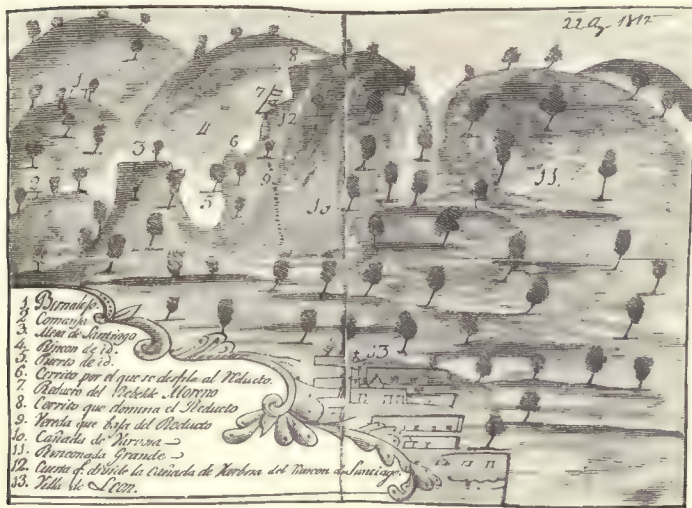 22 Ag 1817
8
1
7
12
4
3
6
2
5
9
10
11.
13
1. Bernalejo.
2. Comanja.
3. Mesa de Santiago
4. Rincon de id.
5. Puerto de id.
6. Cerrito por el que se desfila al Reducto.
7. Reducto del Rebelde Moreno
8. Cerrito que domina el Reducto
9. Vereda que baja del Reducto
10. Cañada de
11. Rinconada Grande
12. Cuesta q.e divide la Cañada de del Rincon de Santiago.
13. Villa de Leon.